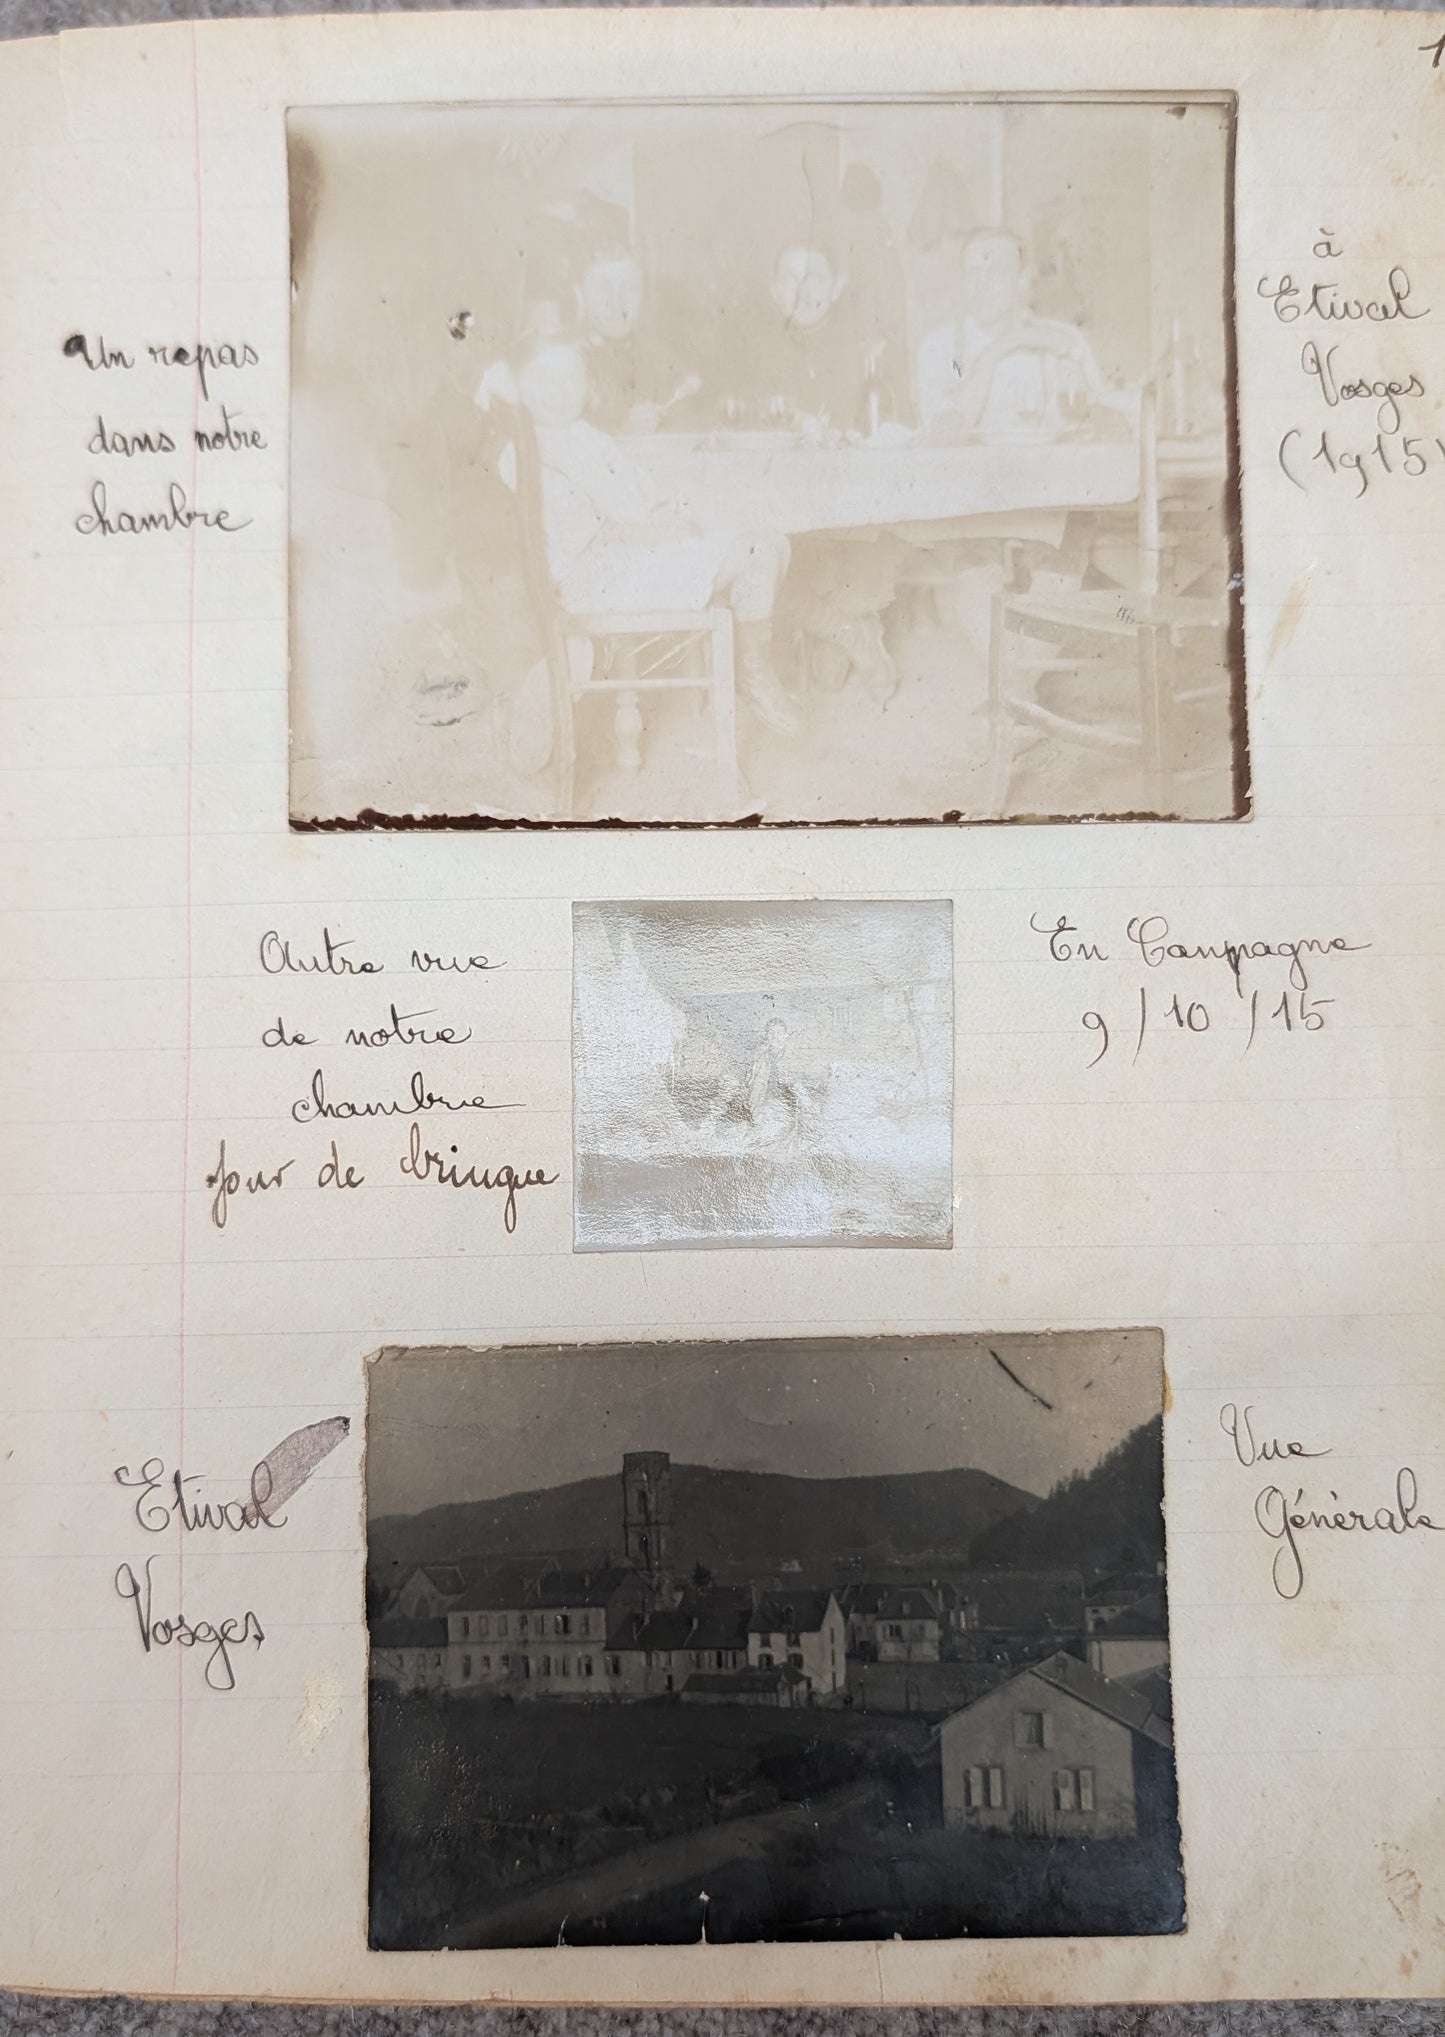 1
Un repas
dans notre
chambre
à
Etival
Vosges
(1915)
Autre vue
de notre
chambre
jour de bringue
En Campagne
9/10/15
Etival
Vosges
Vue
Générale